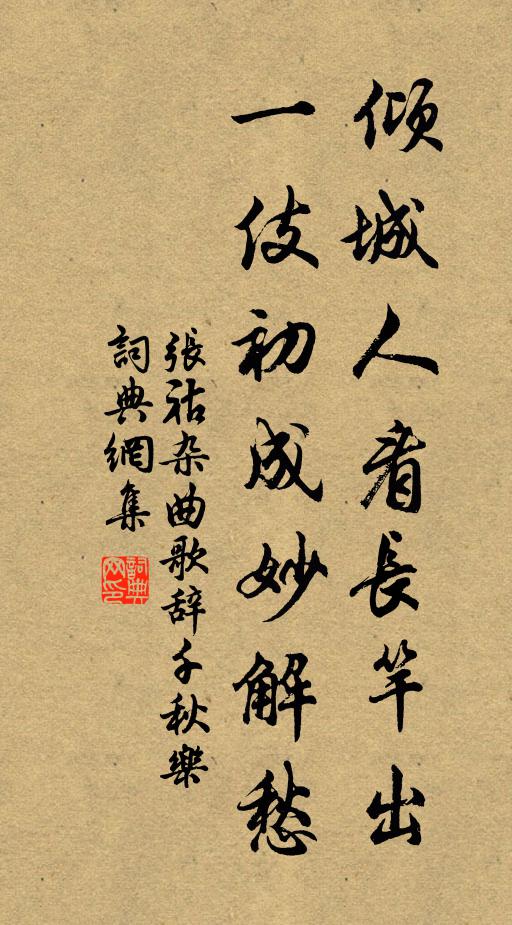 傾城人看長竿出
一伎初成妙解愁
張祜杂曲歌辞千秋樂
詞典網集
詞典
网印